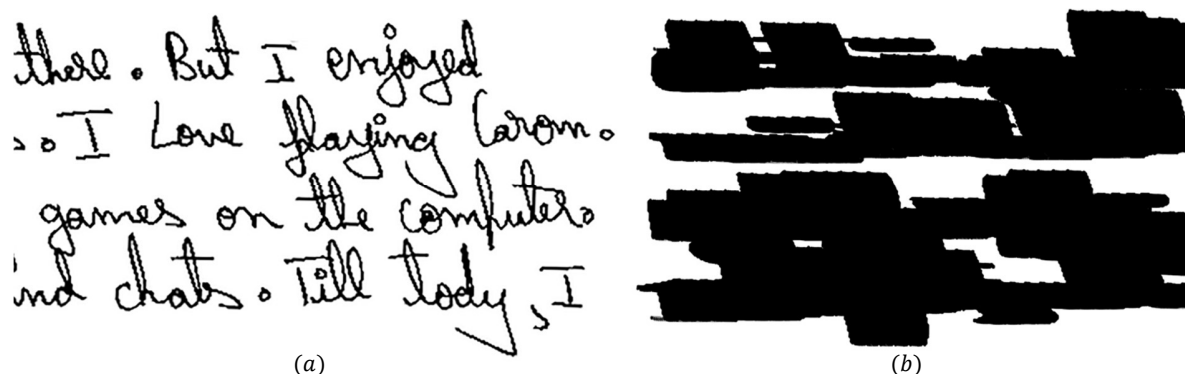 there. But I enjoyed
s. I Love playing Carom.
games on the computer.
ind chats. Till tody, I
(a) (b)